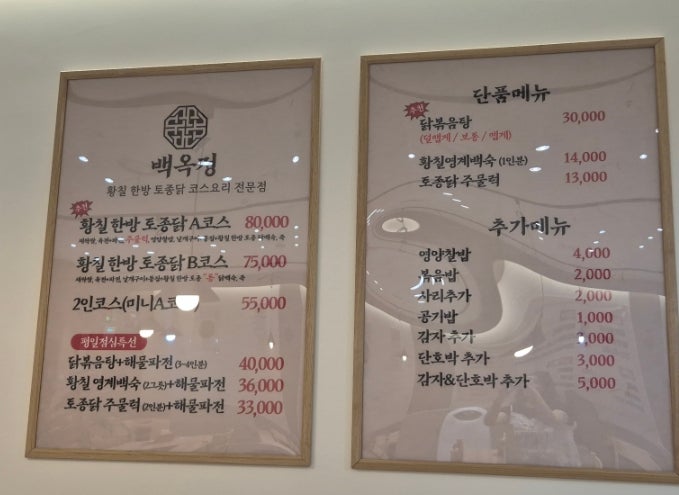 백옥정
황칠 한방 토종닭 코스요리 전문점
추천
황칠 한방 토종닭 A코스 80,000
황칠 한방 토종닭 B코스 75,000
2인코스(미니A코스) 55,000
평일점심특선
닭볶음탕+해물파전 (3~4인분) 40,000
황칠 영계백숙 (2그릇)+해물파전 36,000
토종닭 주물럭 (2인분)+해물파전 33,000
단품메뉴
추천
닭볶음탕 30,000
(덜맵게 / 보통 / 맵게)
황칠영계백숙 (1인분) 14,000
토종닭 주물럭 13,000
추가메뉴
영양찰밥 4,000
볶음밥 2,000
사리추가 2,000
공기밥 1,000
감자 추가
단호박 추가 3,000
감자&단호박 추가 5,000